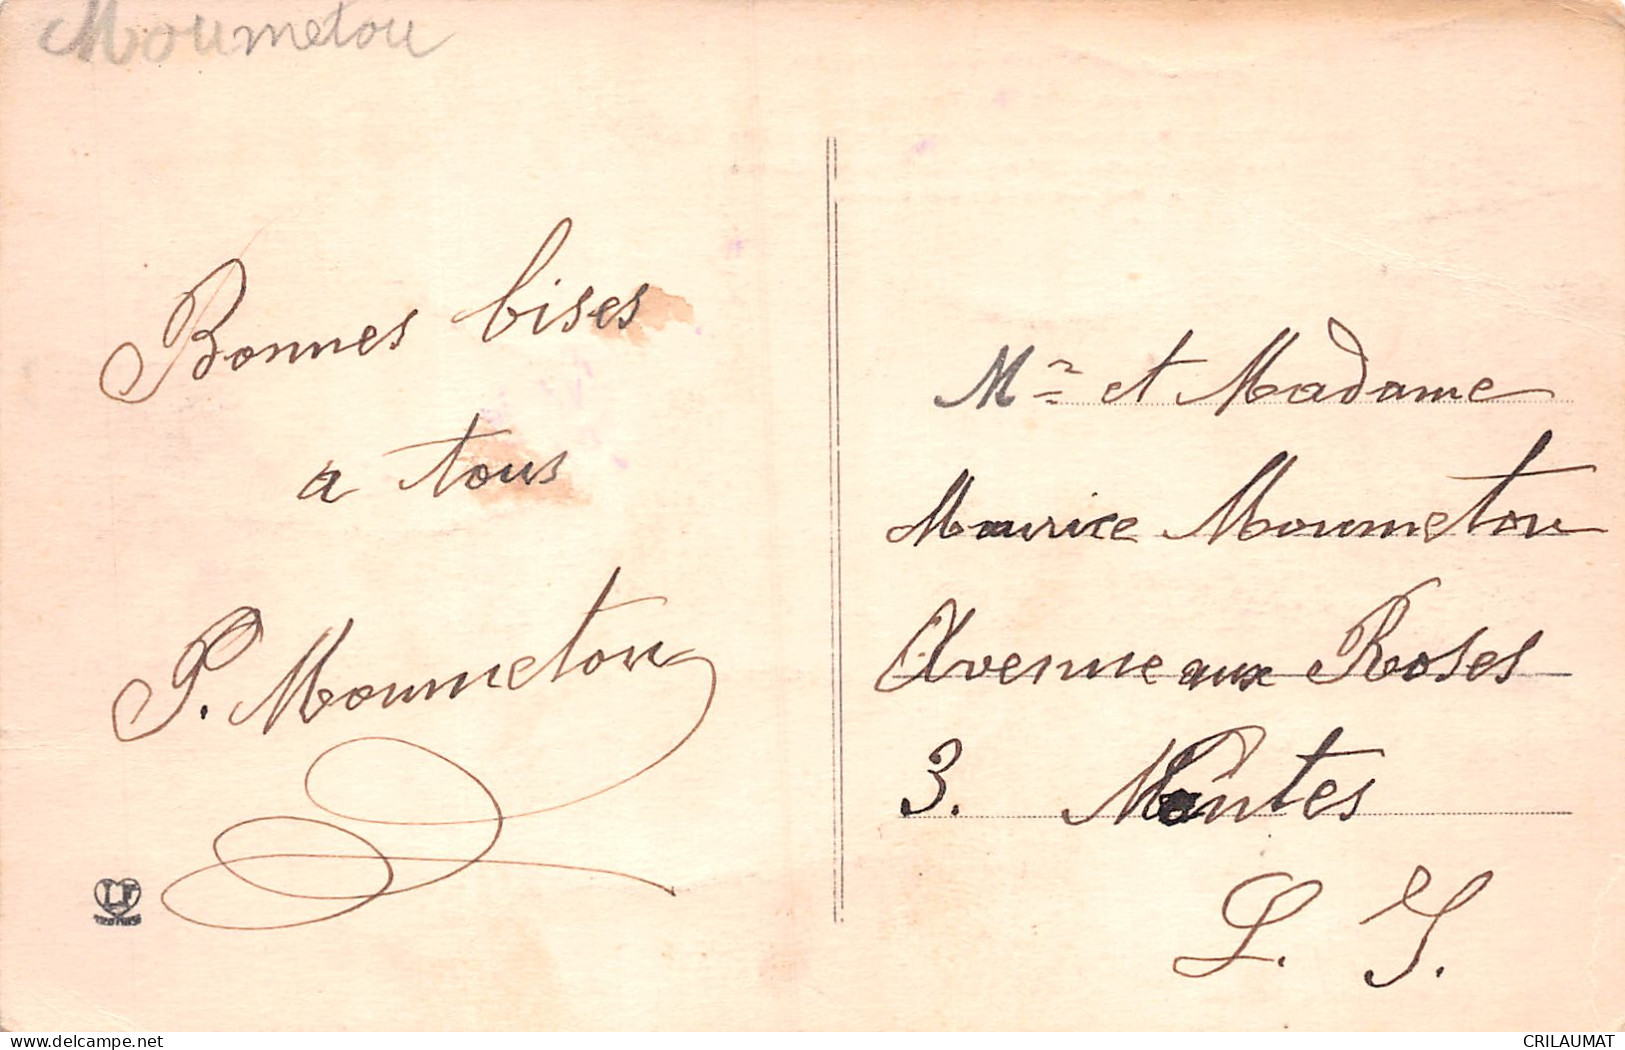 Moumetou
Bonnes bises
a tous
P. Moumetou
LF
Mr et Madame
Maurice Moumetou
Avenue aux Roses
3. Nantes
L. I.
delcampe.net
CRILAUMAT